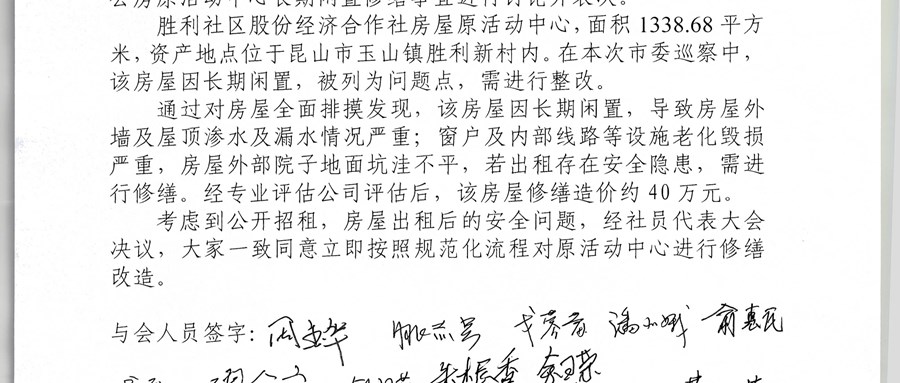 公房原活动中心长期闲置修缮事宜进行讨论并表决。
胜利社区股份经济合作社房屋原活动中心，面积 1338.68 平方
米，资产地点位于昆山市玉山镇胜利新村内。在本次市委巡察中，
该房屋因长期闲置，被列为问题点，需进行整改。
通过对房屋全面排摸发现，该房屋因长期闲置，导致房屋外
墙及屋顶渗水及漏水情况严重；窗户及内部线路等设施老化毁损
严重，房屋外部院子地面坑洼不平，若出租存在安全隐患，需进
行修缮。经专业评估公司评估后，该房屋修缮造价约 40 万元。
考虑到公开招租，房屋出租后的安全问题，经社员代表大会
决议，大家一致同意立即按照规范化流程对原活动中心进行修缮
改造。
与会人员签字：俞惠民